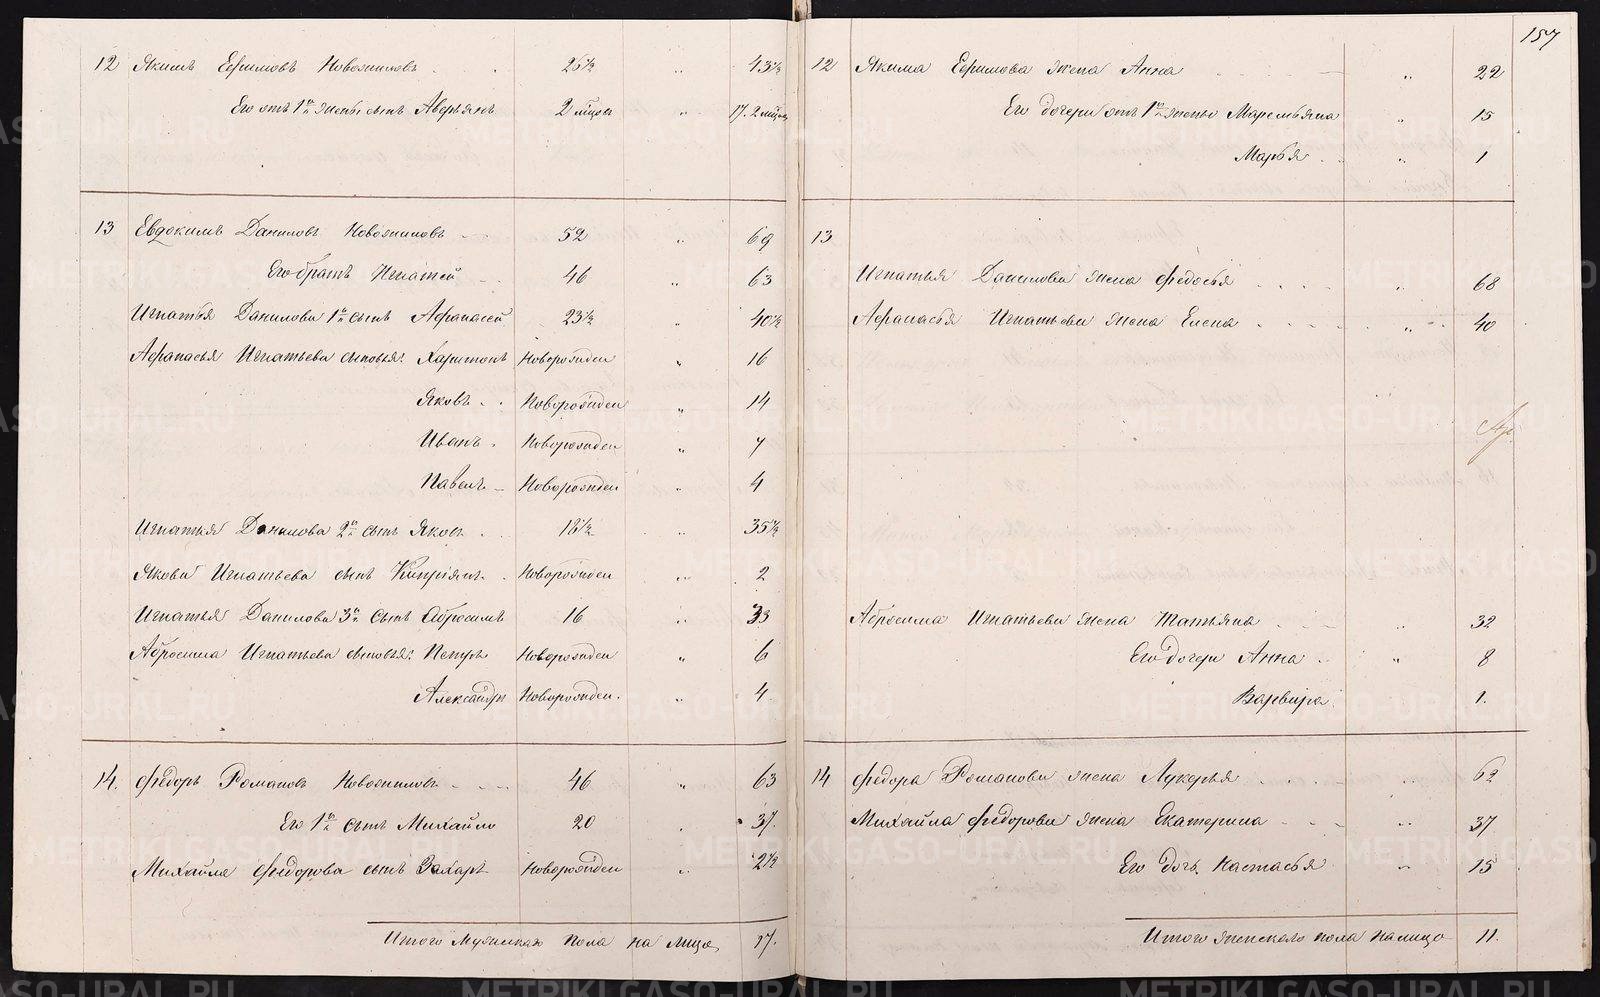 157
12 Якимъ Ефимовъ Новожиловъ 26½ " 43½
Его отъ 1й жены сынъ Аверьянъ 2 мѣсяц " 17. 2 мѣсяц
13 Евдокимъ Даниловъ Новожиловъ 52 " 69
Его братъ Игнатей 46 " 63
Игнатья Данилова 1й сынъ Афанасей 23½ " 40½
Афанасья Игнатьева сыновья: Харитонъ Новорожден " 16
Яковъ Новорожден " 14
Иванъ Новорожден " 7
Павелъ Новорожден " 4
Игнатья Данилова 2й сынъ Яковъ 18½ " 35½
Якова Игнатьева сынъ Кипріянъ Новорожден " 2
Игнатья Данилова 3й сынъ Абросимъ 16 " 33
Абросима Игнатьева сыновья: Петръ Новорожден " 6
Александръ Новорожден. " 4
14. Федоръ Романовъ Новожиловъ 46 " 63
Его 1й сынъ Михайло 20 " 37.
Михайла Федорова сынъ Захаръ Новорожден " 2½
Итого Мужескаго пола на лицо 17.
12 Якима Ефимова жена Анна " 22
Его дочери отъ 1й жены Маремьяна " 15
Марья " 1
13
Игнатья Данилова жена Федосья " 68
Афанасья Игнатьева жена Елена " 40
Абросима Игнатьева жена Татьяна " 32
Его дочери Анна " 8
Варвара " 1.
14 Федора Романова жена Лукерья " 62
Михайла Федорова жена Екатерина " 37
Его дочь Настасья " 15
Итого женскаго пола налицо 11.
METRIKI.GASO-URAL.RU